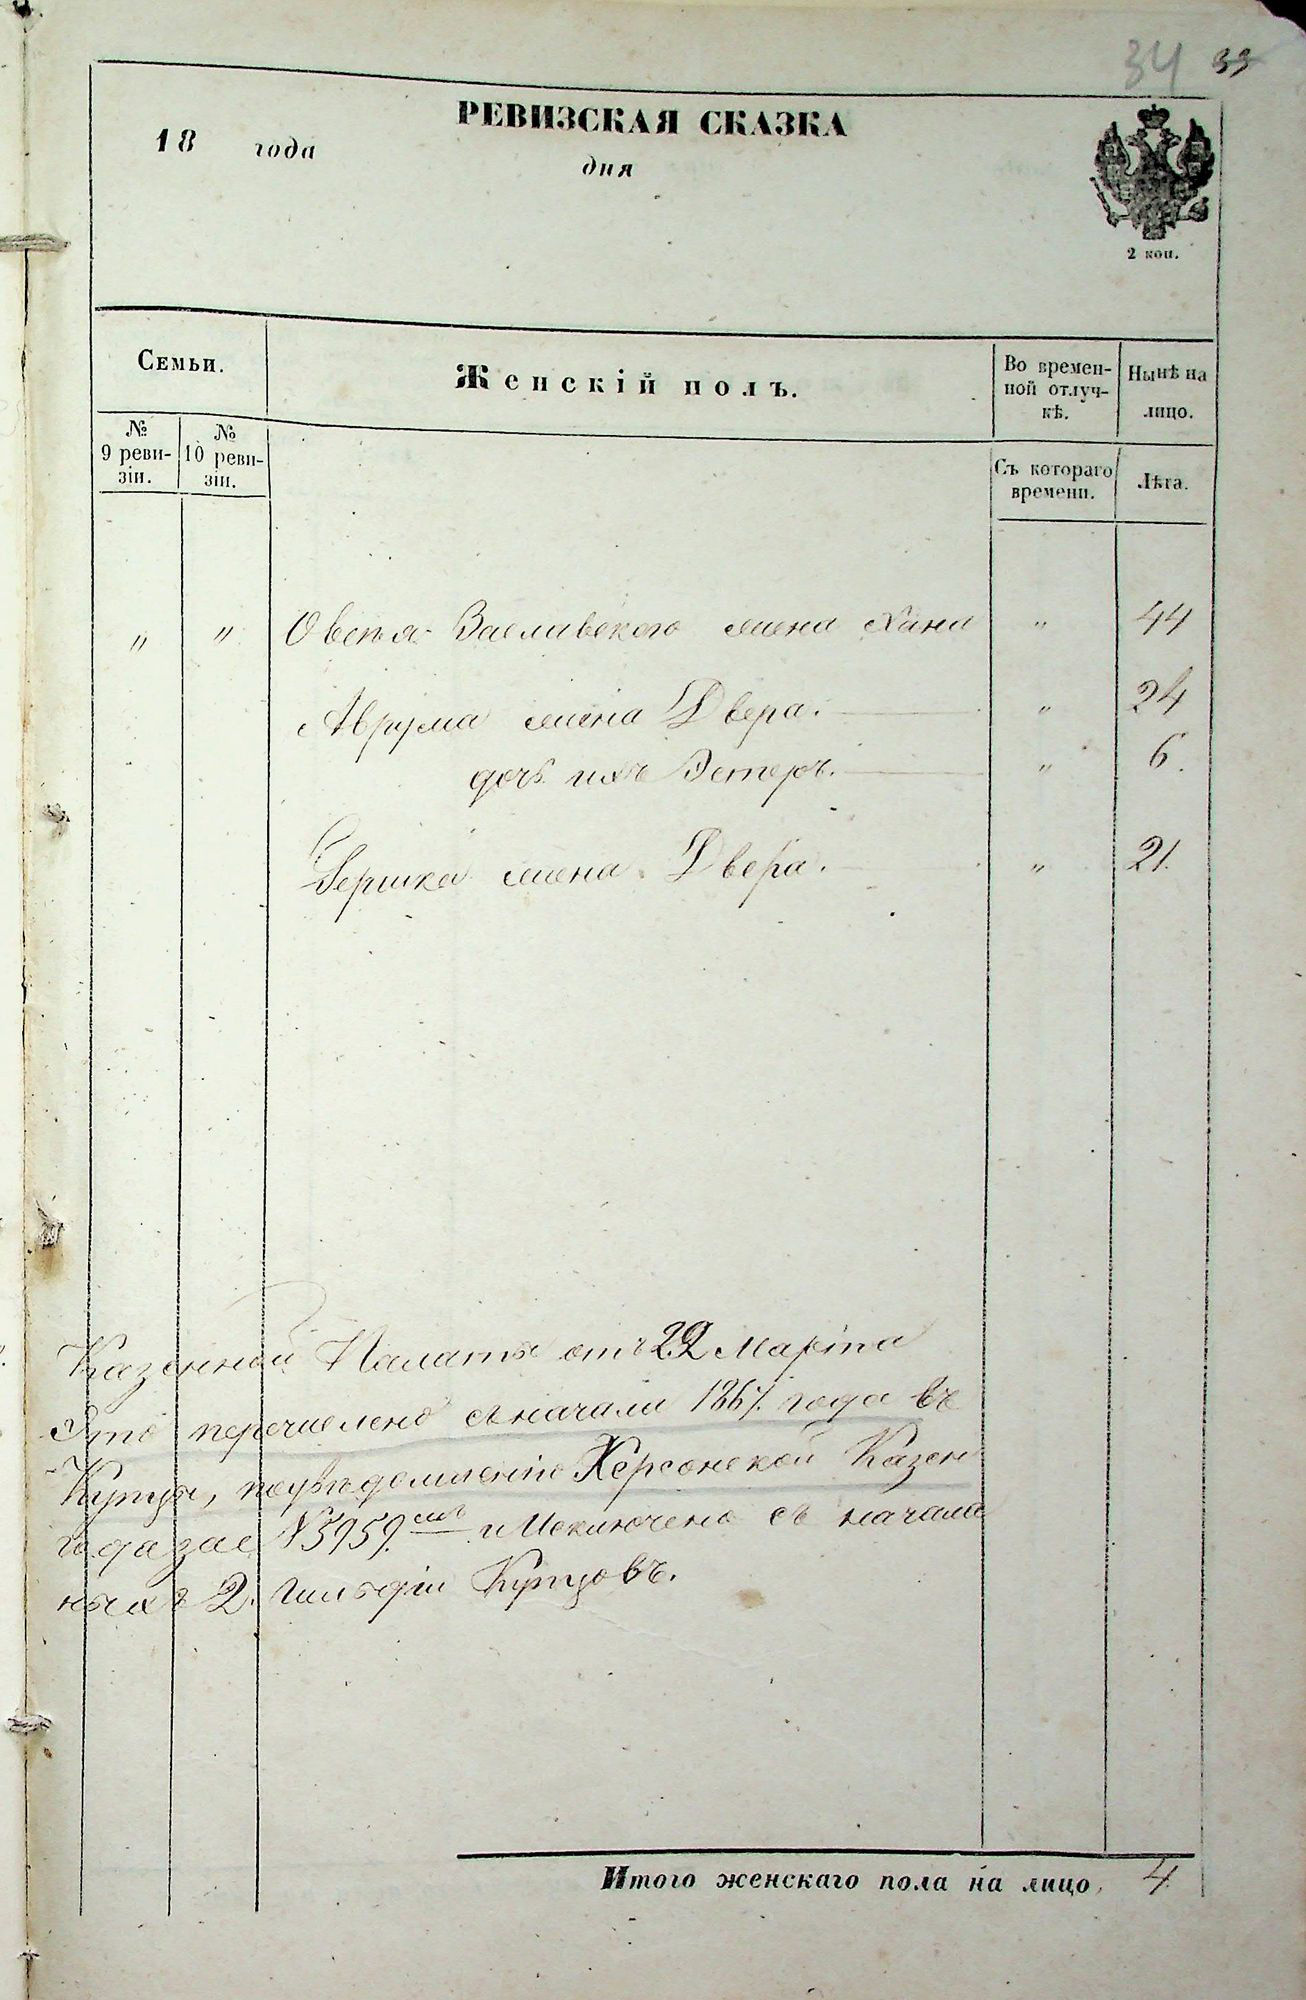 34 33
РЕВИЗСКАЯ СКАЗКА
18 года
дня
2 коп.
Семьи.
Женскій полъ.
Во времен-
ной отлуч-
кѣ.
Нынѣ на
лицо.
№
9 реви-
зіи.
№
10 реви-
зіи.
Съ котораго
времени.
Лѣта.
" " Овсѣя Заславскаго жена Хана " 44
Аврума жена Двера. " 24
дочь ихъ Эстеръ. " 6.
Гершка жена Двера. " 21.
Казенной Палаты отъ 22 Марта
Это перечислено съ начала 1867. года въ
Купцы, по увѣдомленію Херсонской Казен
года за № 5959. и Исключено съ начала
ныхъ 2. гильдіи Купцовъ.
Итого женскаго пола на лицо, 4.